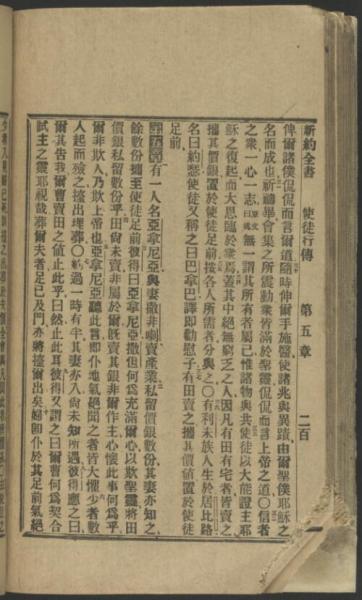 新約全書　使徒行傳　第五章　二百
俾爾諸僕侃侃而言爾道隨時伸爾手施醫使諸兆與異蹟由爾聖僕耶穌之
名而成也祈禱畢會集之所震動眾皆滿於聖靈侃侃而言上帝之道〇信者
之眾一心一志無一謂其所有者屬己惟諸物與共使徒以大能證主耶
穌之復起而大恩臨於眾焉蓋其中絕無窮乏之人因凡有田有宅者皆賣之
攜其價銀置於使徒足前按各人所需者分與之〇有利未族人生於居比路
名曰約瑟使徒又稱之曰巴拿巴譯即勸慰子有田賣之攜其價值置於使徒
足前
第五章有一人名亞拿尼亞與妻撒非喇賣產業私留價銀數份其妻亦知之
餘數份攜至使徒足前彼得曰亞拿尼亞撒但何為充滿爾心以欺聖靈將田
價銀私留數份乎田尚未賣非屬於爾既賣其銀非爾作主心懷此事何為乎
爾非欺人乃欺上帝也亞拿尼亞聽此言即仆地氣絕聞之者皆大懼少者數
人起而殮之擡出埋葬〇約過一時有半其妻亦入尚未知所遇彼得應之曰
爾其告我爾曹賣田之值止此乎曰然止此耳彼得又謂之曰爾曹何為契合
試主之靈耶視哉葬爾夫者足已及門亦將擡爾出矣婦即仆於其足前氣絕